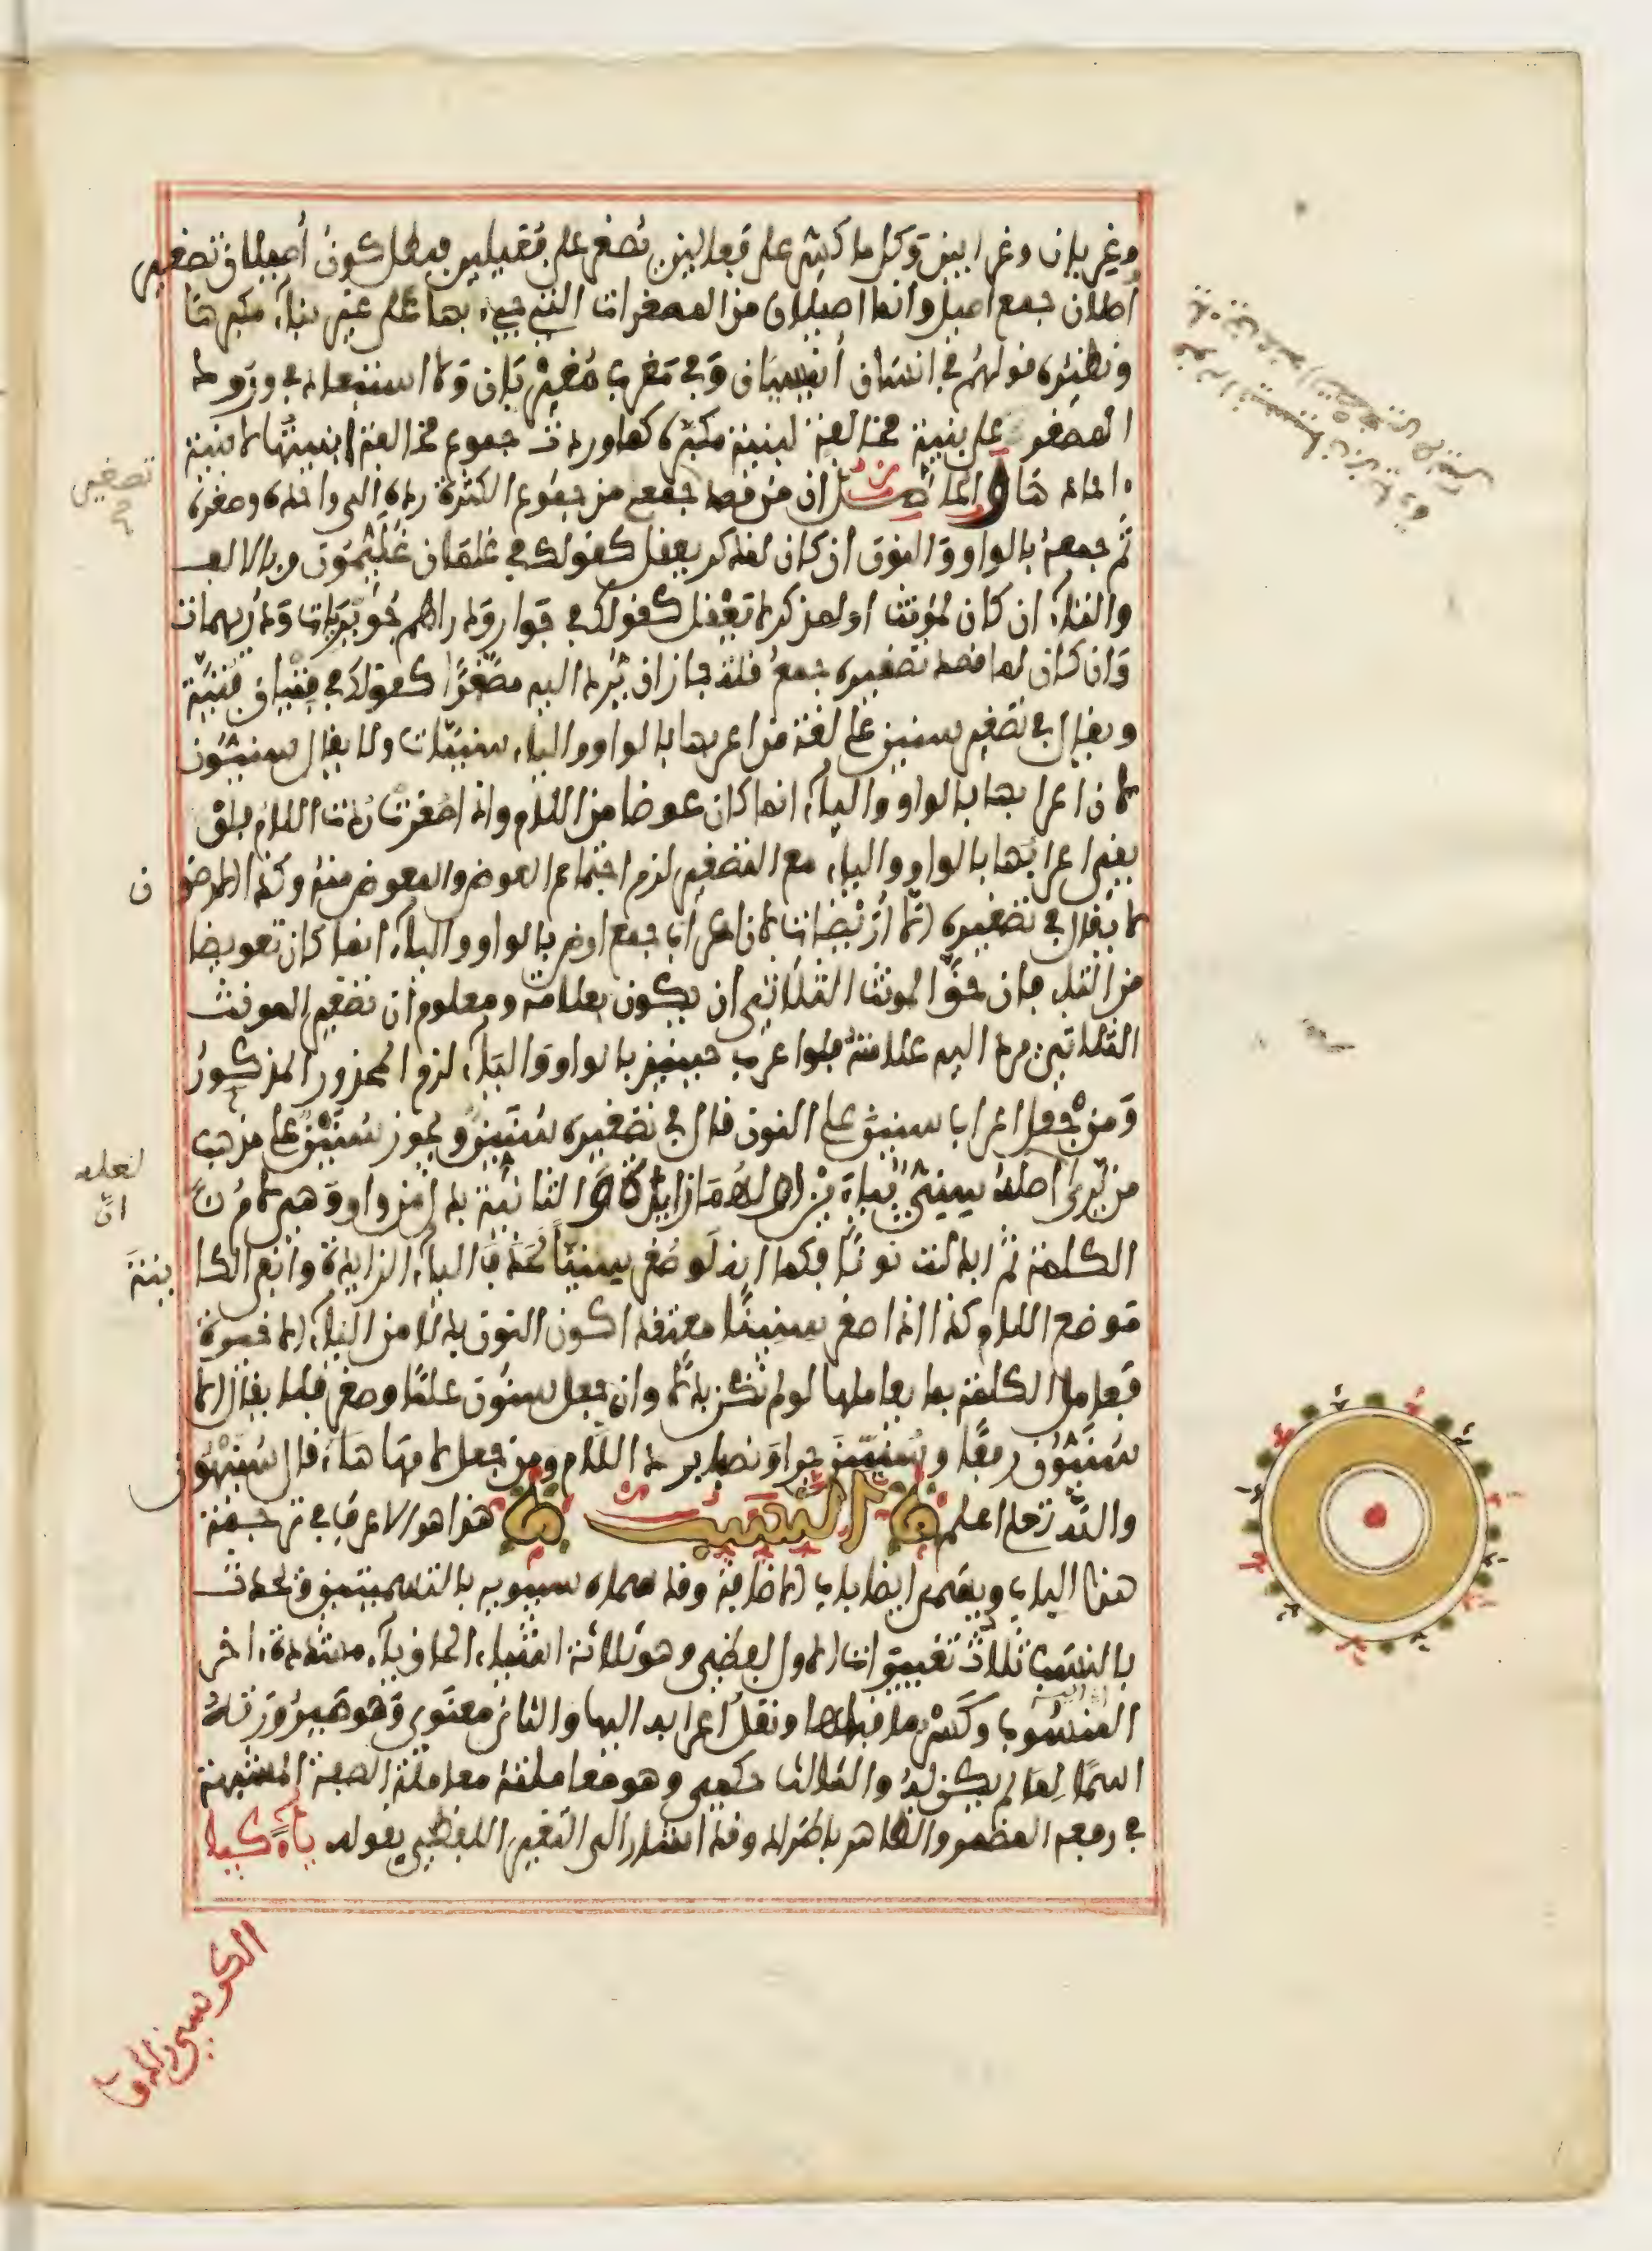 وغربان وغرابين وكل ما كسر على فعالين تصغر على فعيلين فبطل كون أصيلان تصغير
أصلان جمع اصيل وانما اصيلان من المصغرات التي جيء بها على غير بناء مكبرها
ونظيره قولهم في انسان أنيسيان وفي مغرب مغيربان ولا استبعاد في ورود
المصغر على بنية مخالفة لبنية مكبره كما وردت جموع مخالفة ابنيتها لابنية
احادها والحاصل ان من قصد جمعه من جموع الكثرة رده الى واحده وصغره
ثم جمعه بالواو والنون ان كان لمذكر يعقل كقولك في غلمان غليمون وبالالف
والتاء ان كان لمؤنث او لمذكر لا يعقل كقولك في جوار ودراهم جويريات ودريهمات
وان كان لما قصد تصغيره جمع قلة جاز ان يرد اليه مصغرا كقولك في فتيان فتية
ويقال في تصغير سنين على لغة من اعربها بالواو والياء سنيات ولا يقال سنيون
لان اعرابها بالواو والياء انما كان عوضا من اللام واذا صغرت ردت اللام فلو
بقي اعرابها بالواو والياء مع التصغير لزم اجتماع العوض والمعوض منه وكذا الارضون
لا يقال في تصغيره الا أريضات لان اعراب جمع ارض بالواو والياء انما كان تعويضا
من التاء فان حق المونث الثلاثي ان يكون بعلامة ومعلوم ان تصغير المونث
الثلاثي يرد اليه علامته فلو اعرب حينئذ بالواو والياء لزم المحذور المذكور
ومن جعل اعراب سنين على النون قال في تصغيره سنين ويجوز سنين على مذهب
من يرى اصله سنيي بياءين اولاهما زايدة الثانية بدل من واو وهي لام
الكلمة ثم ابدلت نونا فكما انه لو صغر سنيا لحذف الياء الزايدة وابقى الكاينة
موضع اللام كذا اذا صغر سنينا معتقدا كون النون بدلا من الياء الاخيرة
فعامل الكلمة بما يعاملها لو لم تكن بدلا وان جعل سنون علما وصغر فلا يقال الا
سنيون رفعا وسنيين جرا ونصبا برد اللام ومن جعل لامها هاء قال سنيهون
والله تعلى اعلم النسب هذا هو الاعرف في ترجمة
هذا الباب ويسمى ايضا باب الاضافة وقد سماه سيبويه بالتسميتين ويحدث
بالنسب ثلاث تغييرات الاول لفظي وهو ثلاثة اشياء الحاق ياء مشددة اخر
المنسوب اليه وكسر ما قبلها ونقل اعرابه اليها والثاني معنوي وهو صيرورته
اسما لما لم يكن له والثالث حكمي وهو معاملته معاملة الصفة المشبهة
في رفعه المضمر والظاهر باطراد وقد اشار الى التغيير اللفظي بقوله ياء كيا
الكرسي زادوا
تصغير
ن
لعله
ان
ينة